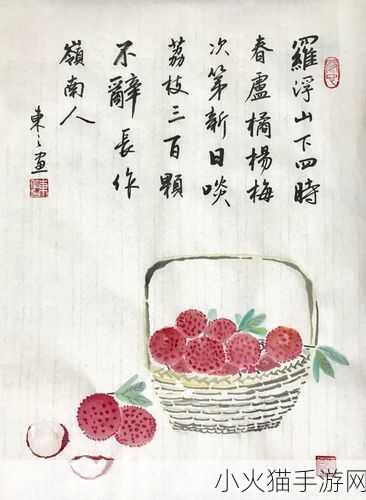 羅浮山下四時
春盧橘楊梅
次第新日啖
荔枝三百顆
不辭長作
嶺南人
東之畫
小火猫手游网